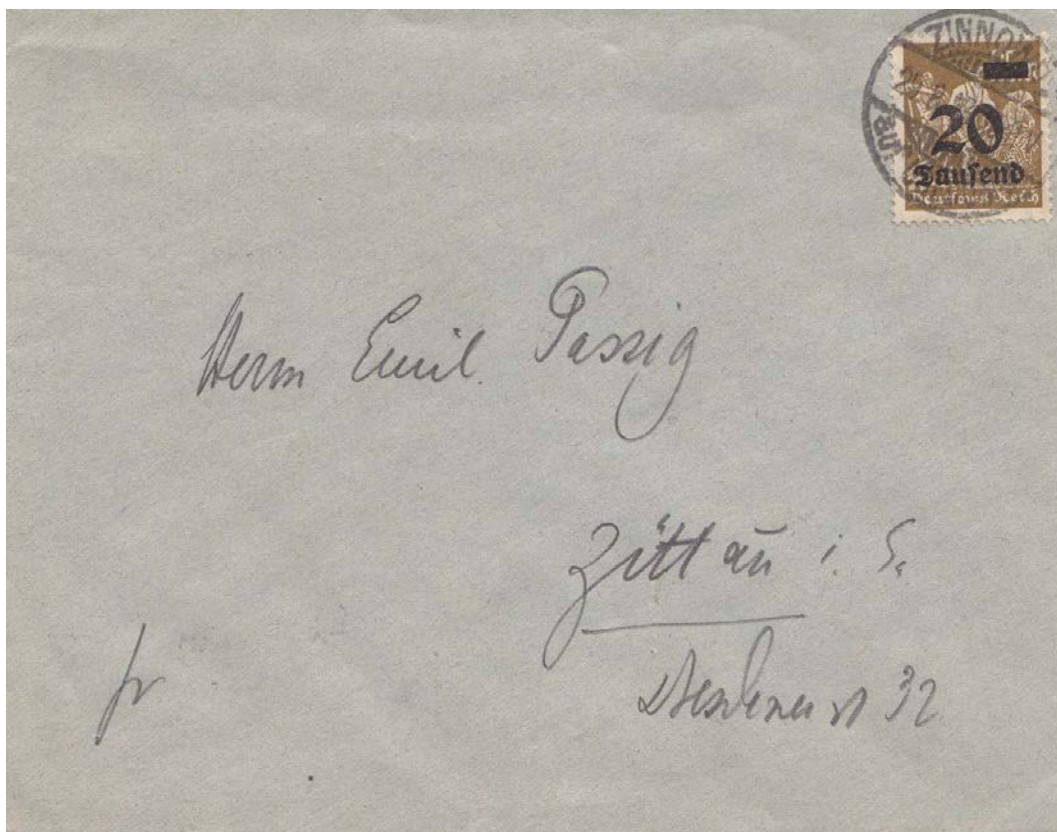 ZINNOW
20
Tausend
Deutsches Reich
Herrn Emil Passig
Zittau i. S.
Dresdenerst 32
fr